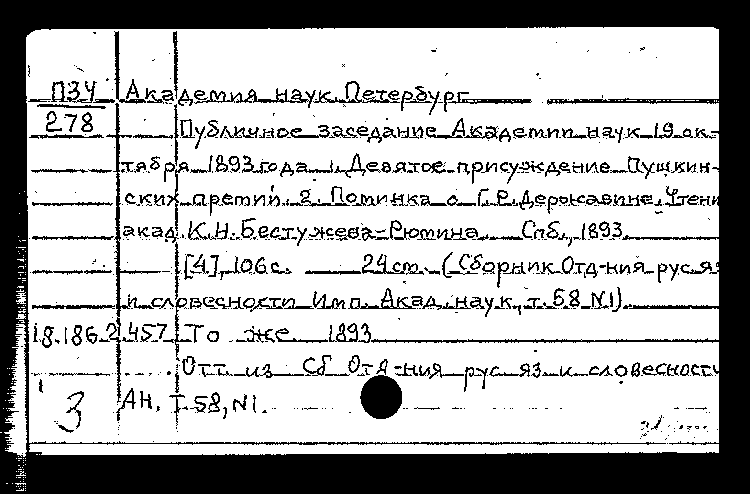 ПЗ4 Академия наук. Петербург
278 Публичное заседание Академии наук 19 ок-
тября 1893 года 1. Девятое присуждение Пушкин-
ских премий. 2. Поминка о Г.Р. Державине. Чтени
акад. К.Н. Бестужева-Рюмина. Спб., 1893.
[4], 106 с. 24 см. (Сборник Отд-ния рус яз
и словесности Имп. Акад. наук, т. 58 N1)
18.186.2.457 То же. 1893
Отт. из Сб Отд-ния рус яз. и словесности
3 АН. Т. 58, N1.